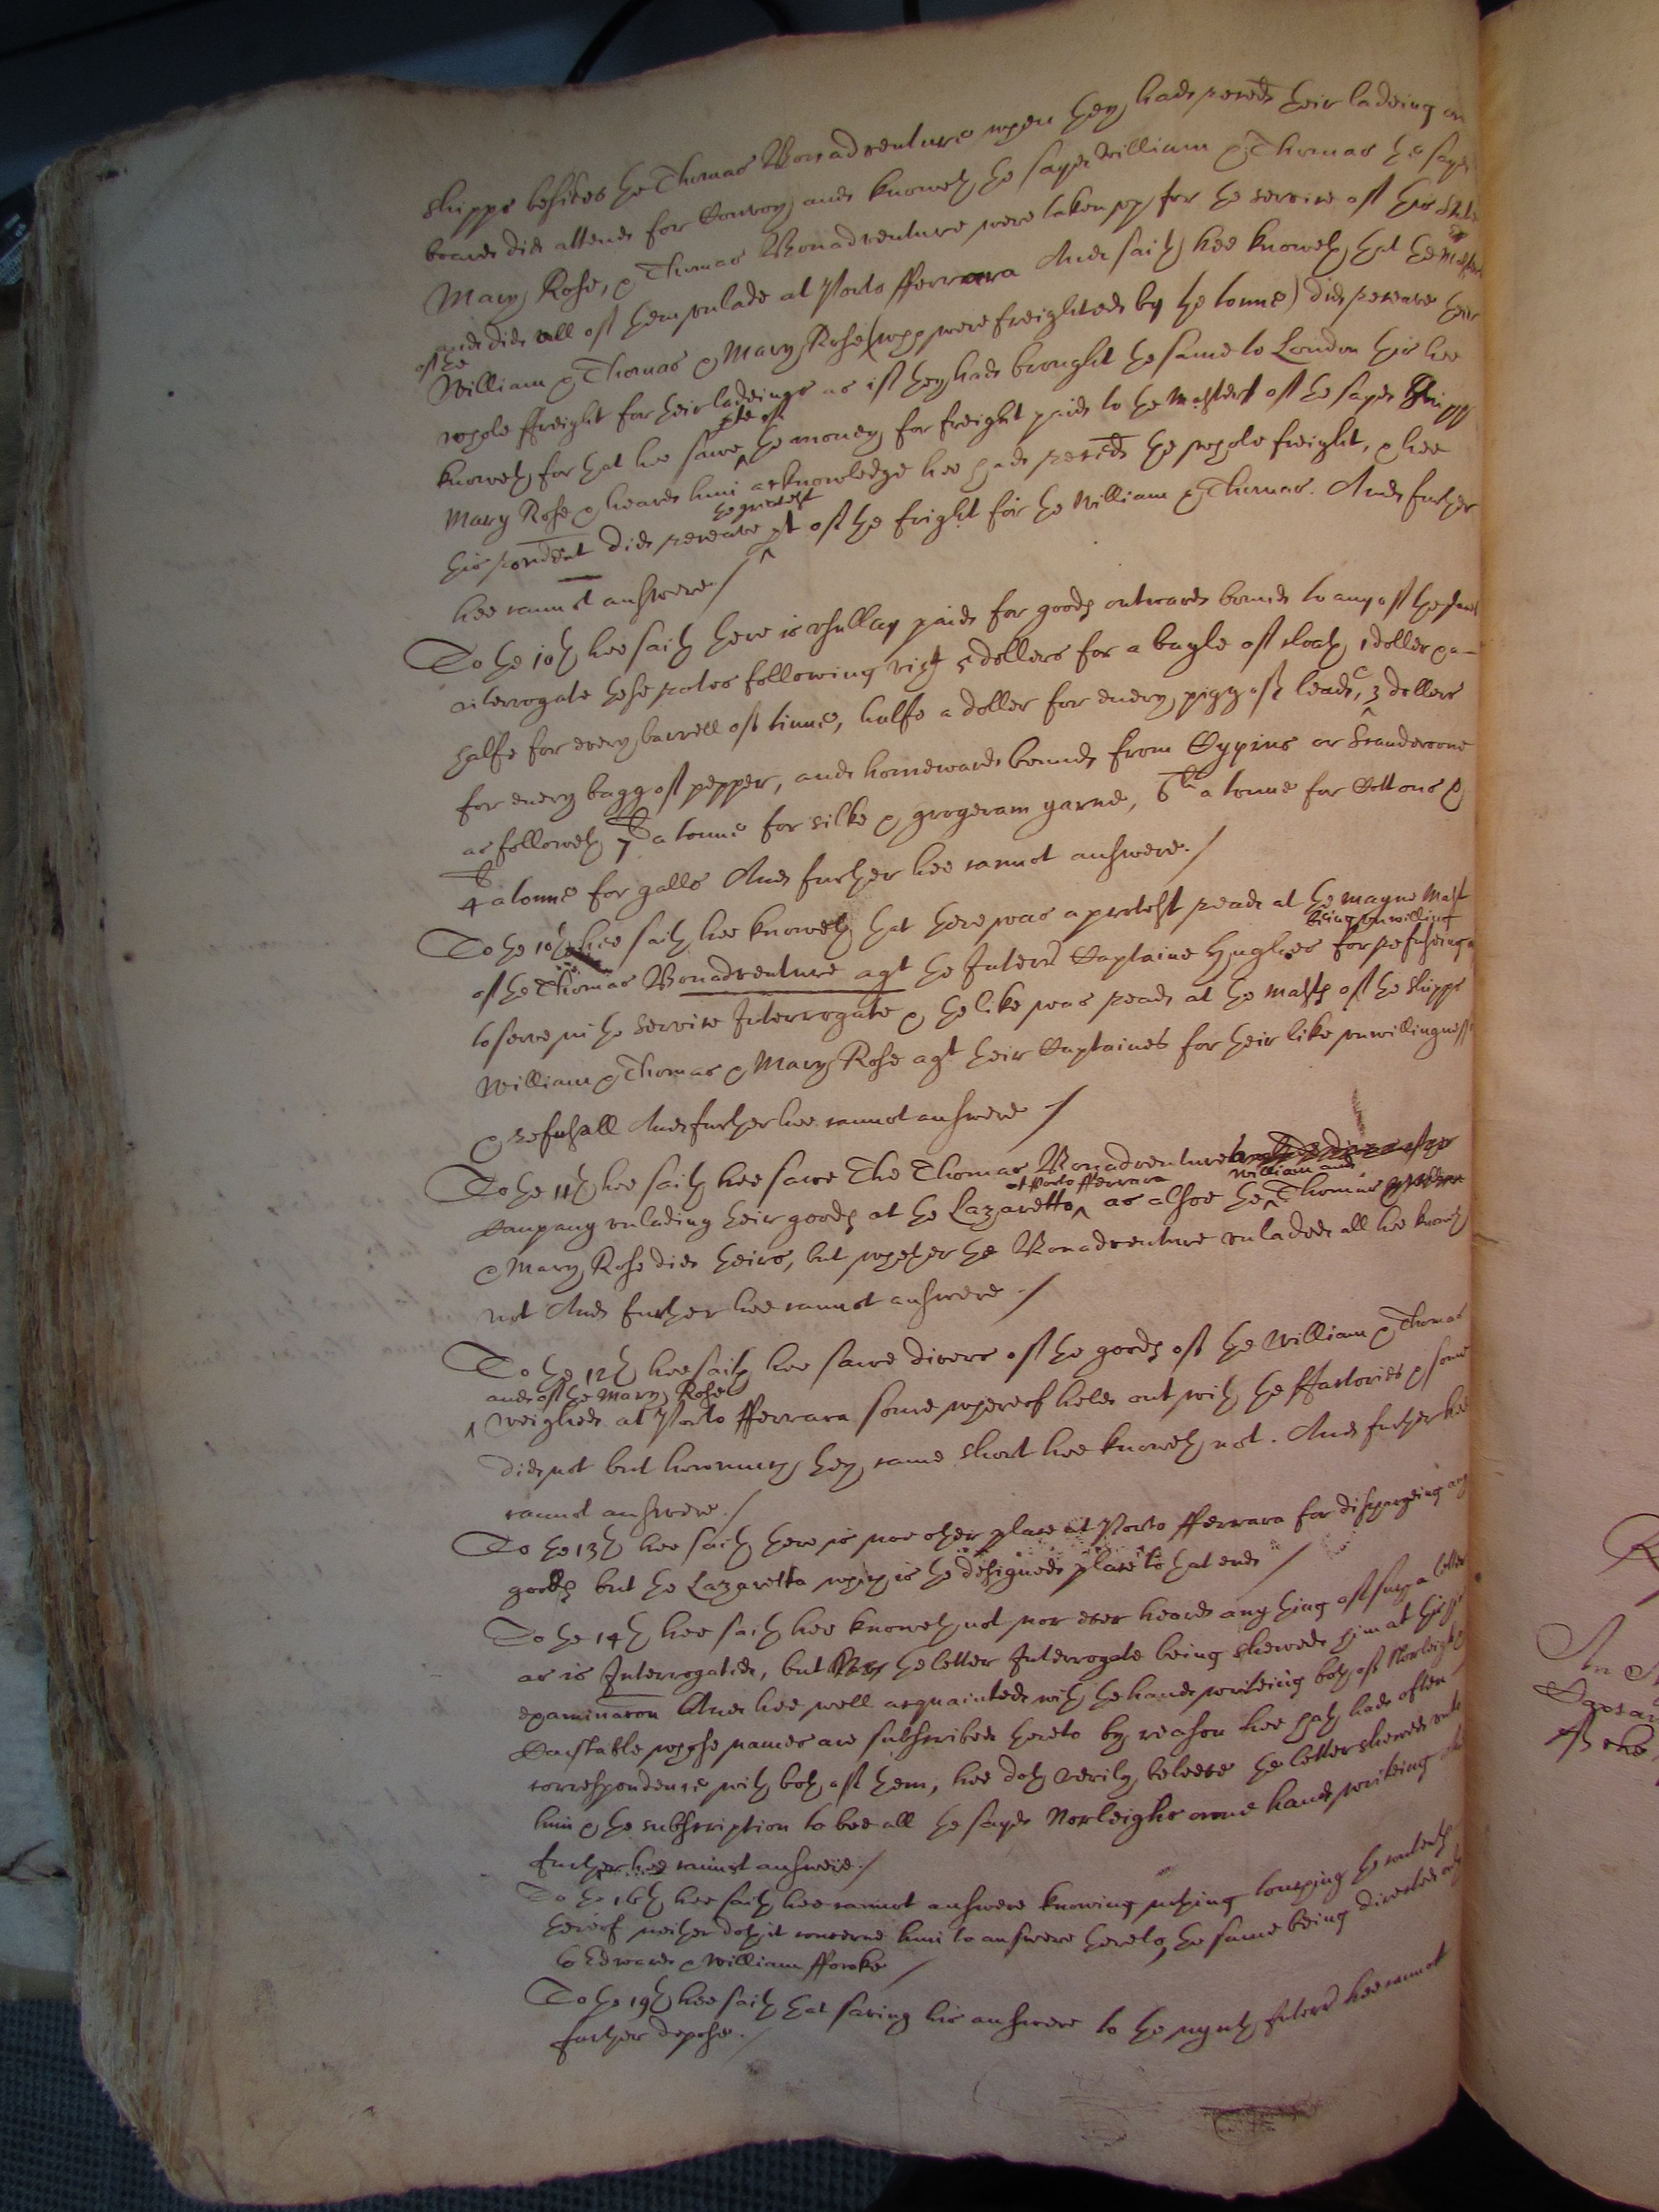 shipps besides the Thomas Bonadventure when they had receaved their ladeing on
board did attend for Convoy, and knoweth the sayd William & Thomas the sayd
Mary Rose, & Thomas Bonadventure were taken up for the service of this State
and did all of them unlade at Porto fferrara And saith hee knoweth that the Masters
of the
William & Thomas & Mary Rose (which were freighted by the tonne) did receave their
whole ffreight for their ladeings as if they had brought the same to London this hee
knoweth for that hee sawe pte of the money for freight paid to the Master of the sayd Shipp
Mary Rose & heard him acknowledge hee had received the whole freight, & hee
this rondent did receave the greatest pt of the fright for the William & Thomas. And further
hee cannot answere /
To the 10th hee saith there is usually paid for goods outwards bound to any of the places
interrogate these rates following vizt 5 dollers for a bayle of cloath, 1 doller & a
halfe for every barrell of tinne, halfe a doller for every pigg of leade, 3 dollers
for every bagg of pepper, and homewards bound from Cyprus or Scanderoone
as followeth 7 li a tonne for silke & grogeram yarne, 6 li a tonne for Cottons &
4 li a tonne for galls And further hee cannot answere. /
To the 10th hee saith hee knoweth that there was a protest read at the mayne Mast
being unwilling
of the Thomas Bonadventure agt the Interr Captaine Hughes for refuseing
to serve in the service Interrogate & the like was read at the masts of the shipps
William & Thomas & Mary Rose agt their Captaines for their like unwillingness
& refusall And further hee cannot answere /
To the 11th hee saith hee sawe The Thomas Bonadventure
at Porto fferrara William and
Company unlading their goods at the Lazaretto as alsoe the Thomas
& Mary Rose did theirs, but whether the Bonadventure unladed all hee knoweth
not And further hee cannot answere /
To the 12th hee saith hee sawe divers of the goods of the William & Thomas
and of the Mary Rose
weighed at Porto fferrara some whereof held out with the ffactories & some
did not but how much they came short hee knoweth not. And further hee
cannot answere /
To the 13th hee saith there is noe other place at Porto fferrara for dischargeing any
goods but the Lazaretta which is the designed place to that end /
To the 14th hee saith hee knoweth not nor ever heard any thing of such a letter
as is Interrogated, but the letter Interrogate being shewed him at this
examinacon And hee well acquainted with the hand writeing both of Norleigh &
Constable whose names are subscribed thereto by reason hee hath had often
correspondence with both of them, hee doth verily beleeve the letter shewed unto
him & the subscription to bee all the sayd Norleighs owne hand writeing and
further hee cannot answere. /
To the 16th hee saith hee cannot answere knowing nothing touching the contents
thereof neither doth it concerne him to answere thereto, the same being directed only
to Edward & William ffowke /
To the 19th hee saith that saving his answere to the nynth Interr hee cannot
further depose. /